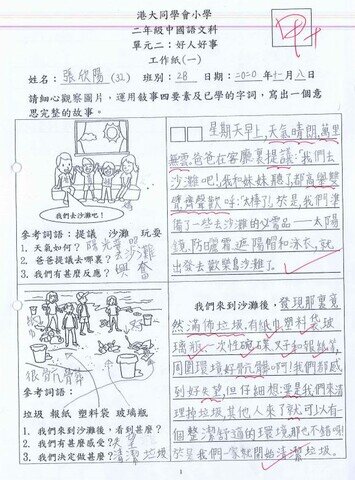 港大同學會小學
二年級中國語文科
單元二：好人好事
工作紙(一)
甲+
姓名：張欣陽(32) 班別：2B 日期：2020年十一月八日
請細心觀察圖片，運用敘事四要素及已學的字詞，寫出一個意
思完整的故事。
我們去沙灘吧！
參考詞語：提議 沙灘 玩耍
1. 天氣如何？
2. 爸爸提議去哪裏？去沙灘
3. 我們有甚麼反應？興奮
星期天早上，天氣晴朗，萬里
無雲，爸爸在客廳裏提議：「我們去
沙灘吧！」我和妹妹聽了，都高興
齊聲歡呼：「太棒了！」於是我們準
備了一些去沙灘的必需品——太陽
鏡、防曬霜、遮陽帽和泳衣，就
出發去歡樂島沙灘了。
很骯髒
參考詞語：
垃圾 報紙 塑料袋 玻璃瓶
1. 我們來到沙灘後，看到甚麼？
2. 我們有甚麼感受？失望
3. 我們決定做甚麼？清潔垃圾
我們來到沙灘後，發現那裏竟
然滿佈垃圾，有紙巾、塑料袋、玻
璃瓶、一次性碗碟、叉子和報紙等，
周圍環境好骯髒啊！我們都感
到好失望，但仔細想：要是我們來清
理掉垃圾，其他人來了就可以有一
個整潔舒適的環境，那也不錯呀！
於是我們一家就開始清潔垃圾。
1